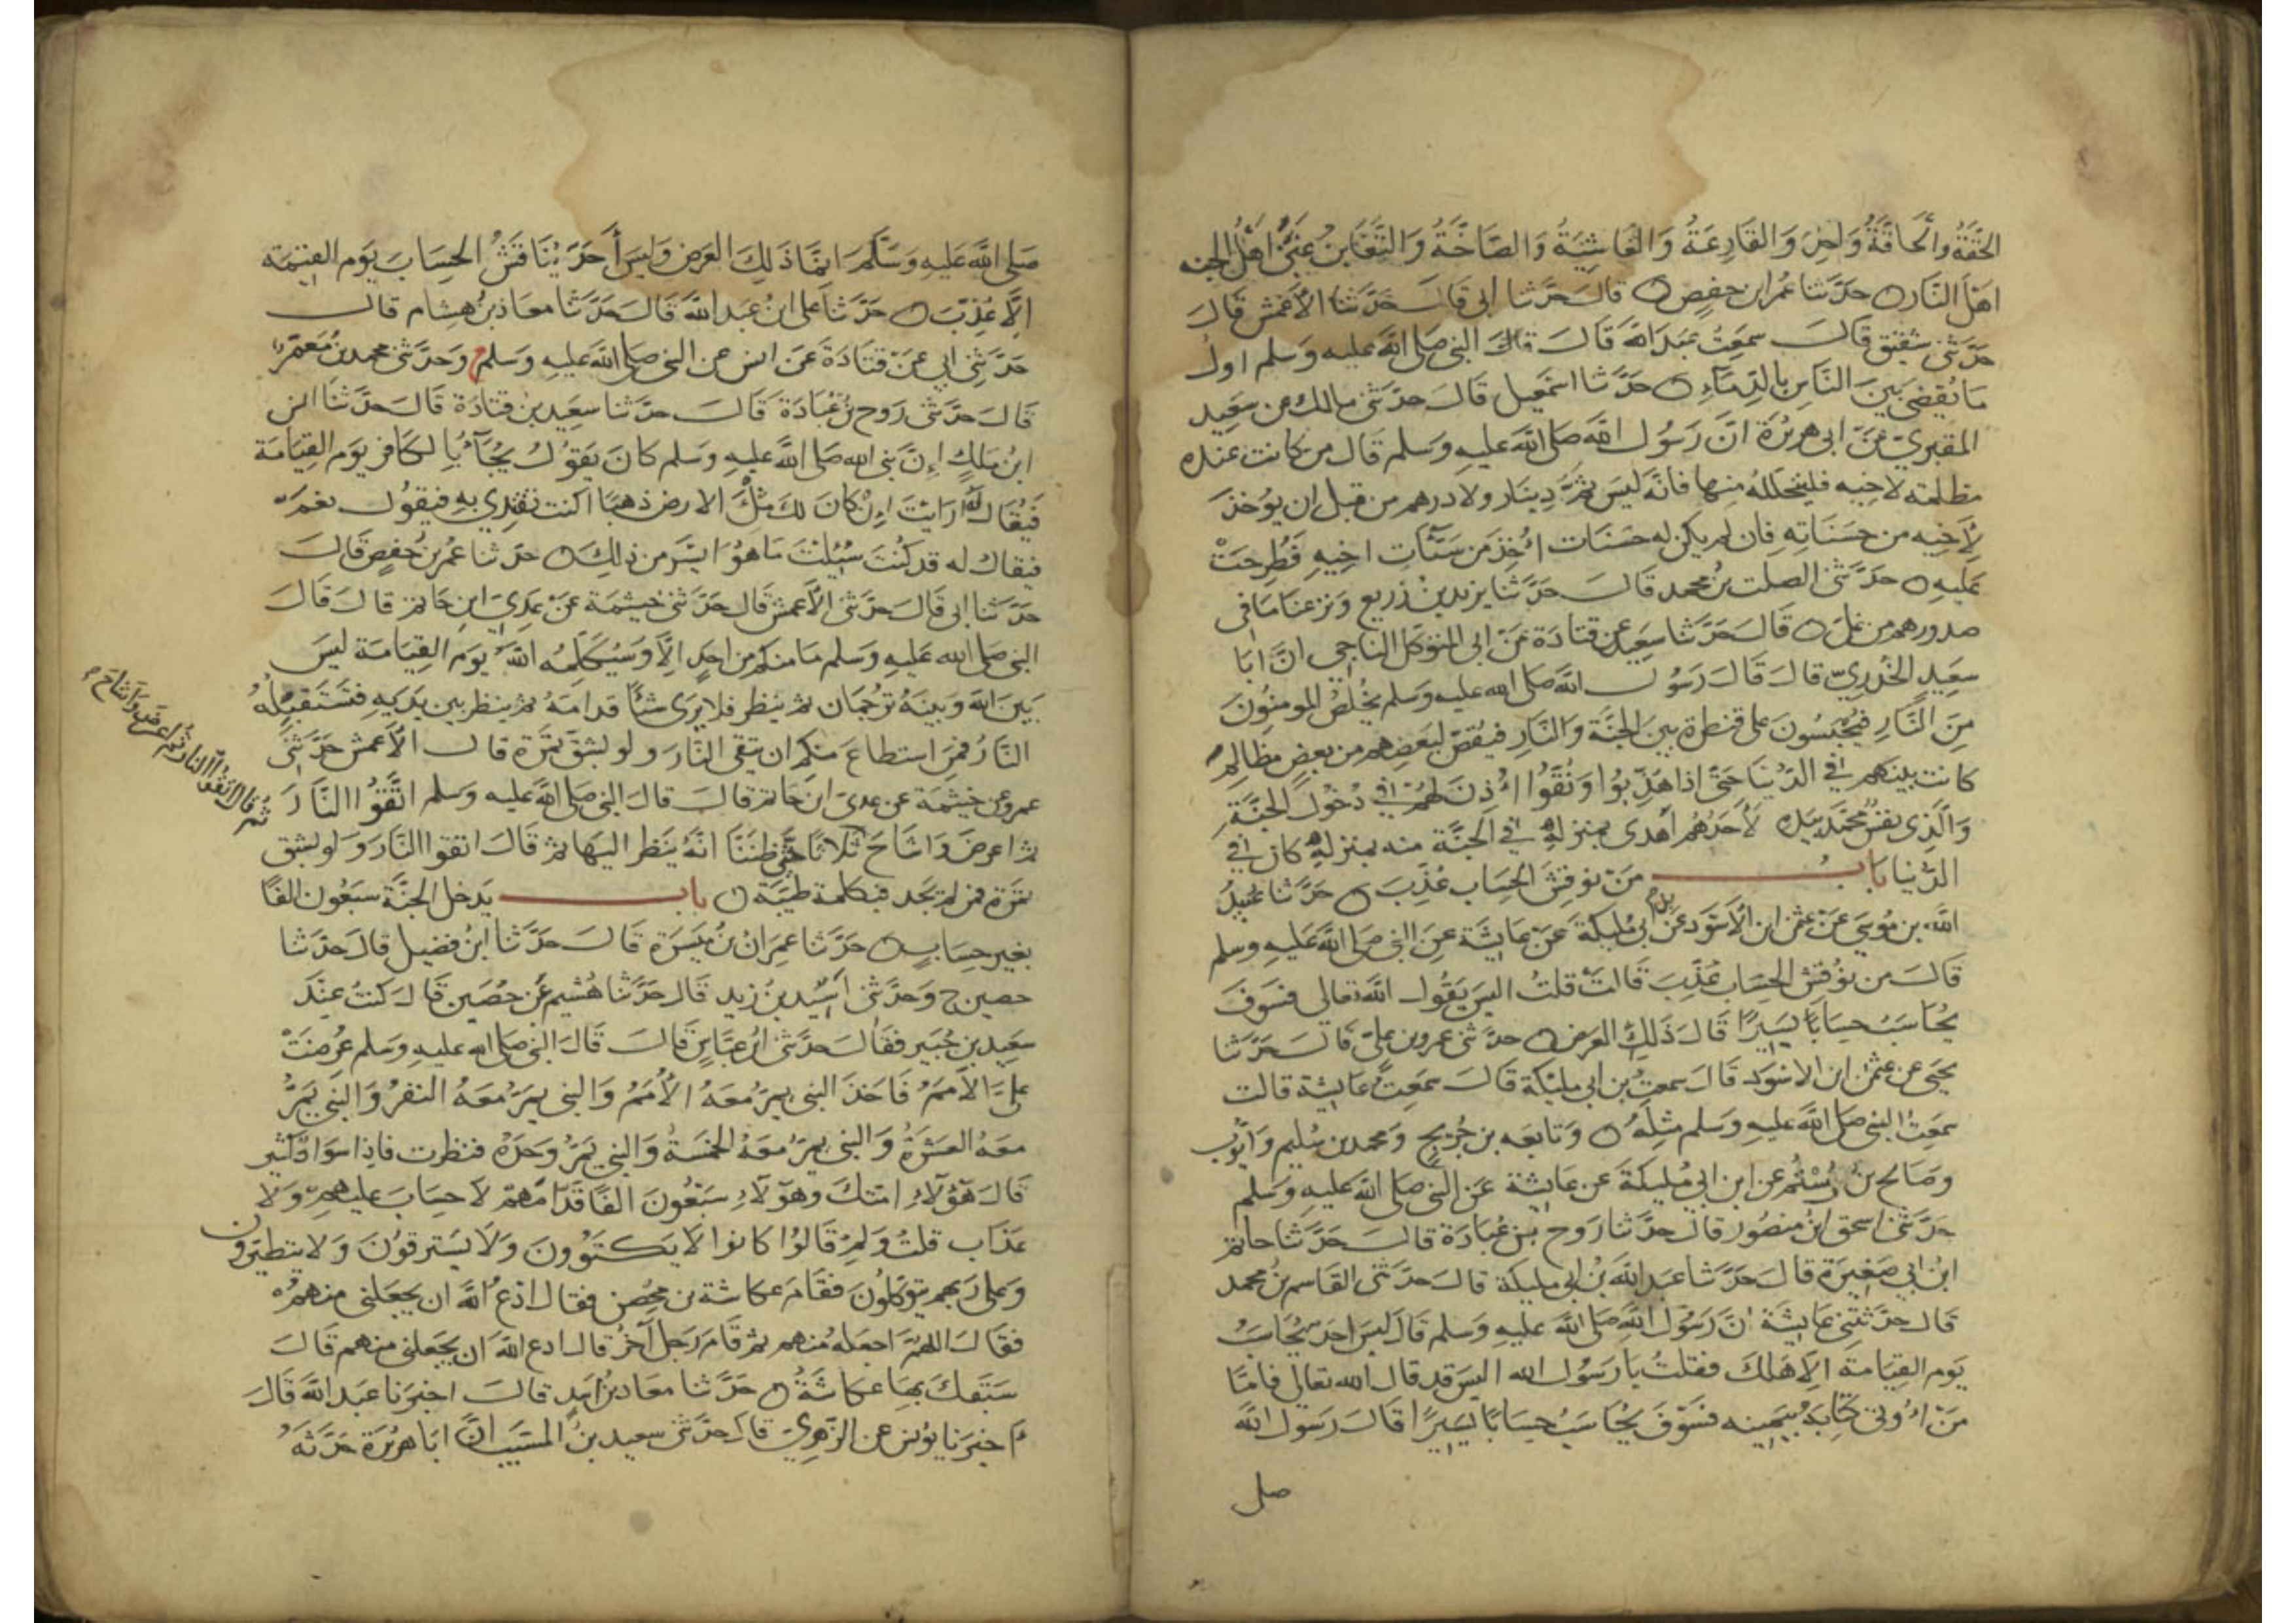 الحَقَّةُ والحَاقَّةُ وَاحِدٌ وَالقَارِعَةُ وَالغَاشِيَةُ وَالصَّاخَّةُ وَالتَّغَابُنُ غَبْنُ أهْلُ الجنه
اهلَ النَّار حدَّثنا عُمر ابن حفصٍ قالَ حدَّثنا أبى قالَ حَدَّثنا الأعْمش قَالَ
حدَّثنى شقيق قالَ سمعتُ عبدَ الله قَالَ قالَ النبى صلى الله عليه وسلم اول
مَا يُقضى بَينَ النَّاسِ بالدِّمَآءِ حَدَّثنا اسمعيل قَالَ حدَّثنى مالك عن سعيد
المقبريّ عَنْ ابى هريرَةَ انَّ رَسُولَ الله صلى الله عليه وسلم قال من كانت عنده
مظلمته لاخيه فليتحللهُ منها فانّه ليسَ ثمَّ دِينار ولا درهم من قبل ان يؤخذ
لِأخيه من حسَنَاتِهِ فان لم يكن له حسَنات أُخِذَ من سَيّآت اخيهِ فَطُرِحَتْ
عَلَيهِ حَدَّثنى الصلت بنُ محمد قالَ حَدَّثنا يزيد بن زُريع وَنزعنا مَا فى
صدورهم من غلٍ قَالَ حَدَّثنا سَعيد عن قتادَة عَنْ ابى المتوكل الناجي انَّ ابَا
سعيدٍ الخُدريّ قالَ قَالَ رَسُول الله صلى الله عليه وسلم يخلُص المومنُونَ
مِنَ النَّارِ فيُحْبَسُونَ على قنطرة بينَ الجنَّة وَالنَّارِ فيُقصّ لبعضِهم من بعضٍ مظالِم
كانت بينَهم في الدّنيا حَتَّى اذا هُذِّبُوا وَنُقُّوا أُذِنَ لهُمْ في دُخول الجنَّةِ
وَالَّذى نفسُ محمّد بيده لأَحدُهُم أهدى بمنزله في الجنَّة منه بمنزله كان في
الدُّنيا بَابُ مَنْ نوقِشَ الحِسَاب عُذّبَ حَدَّثنا عُبيدُ
الله بن موسَى عَنْ عثمٰن ابن الأسْوَد عَنْ ابن ابى مُليكَة عَنْ عَايشَة عَنِ النبى صلى الله عَليهِ وسلم
قالَ من نوُقش الحِسَاب عُذّبَ قَالتْ قلتُ اليسَ يَقُول الله تعالى فسَوفَ
يُحَاسَبُ حِسَابًا يسَيرًا قَالَ ذَلكِ العَرض حدَّثنى عمرو بن عليّ قَالَ حَدَّثنا
يحيَى عن عثمٰن ابن الاسْوَد قَالَ سمعتُ بن ابى مليْكَة قَالَ سَمعتُ عَايشة قالت
سَمعتُ النبى صلى الله عليهِ وسلم مثلَهُ وتابعَه بن جُريج وَمحمد بن سُليم وَايُّوب
وصَالح بنُ رُسْتُم عن ابن ابي مُليكَة عن عَايشة عَن النبى صلى الله عليهِ وَسَلم
حدَّثنى اسحق ابنُ منصُور قالَ حدَّثنا رَوح بن عُبَادَة قالَ حَدَّثنا حاتم
ابنُ ابي صَغيرَة قَالَ حَدَّثنا عَبد الله بْنُ ابى مليكَة قالَ حَدّثنى القاسم بنُ محمد
قَالَ حدَّثتنى عايشَة انَّ رَسُولَ الله صلى الله عليهِ وسَلم قَالَ ليسَ احَدٌ يُحَاسَبُ
يَوم القيَامة الاّ هَلَكَ فقلتُ يا رَسُول الله اليسَ قد قالَ الله تعالى فامّا
مَنْ أُوتى كتابَهُ بيَمينه فسَوْفَ يُحَاسَبُ حِسَابًا يَسيرًا قَالَ رَسُول الله
صل
صَلى الله عَليهِ وَسَلَّم انمَّا ذَلكَ العَرض وَليسَ أَحَدٌ يُنَاقَشُ الحِسَابَ يَوم القيمَة
الَّا عُذّبَ حَدَّثنا على ابنُ عَبد الله قَالَ حَدَّثَنا معَاذ بنُ هشِام قالَ
حَدَّثنِى أبي عَنْ قتادَة عَن انس عن النبى صلى الله عَليهِ وَسلم ح وَحدَّثنى محمد بن مُعَمّر
قالَ حدَّثنى رَوح بنُ عُبَادَة قالَ حدَّثنا سعَيد بن قتادَة قَالَ حَدَّثَنا انس
ابنُ ملكٍ اِنَّ نبى الله صلى الله عَليهِ وَسلم كانَ يَقوُلُ يُجَآءُ بالكَافر يَوم القِيَامَة
فيُقَال لَهُ ارَايْتَ اِنْ كانَ لكَ مثلُ الارض ذهبًا اكنت تفتدي بهِ فيقوُل نعَم
فيقال له قد كنْتَ سُئِلْتَ مَا هوُ ايسَر من ذلِكَ حدّثنا عمر بنُ حفصٍ قَالَ
حدَّثنا ابى قَالَ حدّثنى الأعمش قَالَ حَدَّثنى خَيثمَة عَنْ عَدىّ ابن حَاتم قالَ قَالَ
النبى صلى الله عَليهِ وسلم مَا منكم من احدٍ الَّا وَسَيُكَلّمُه الله يومَ القِيَامَة ليسَ
بَينَ الله وَبَينَهُ تَرجُمَان ثم ينظر فلا يَرى شئًا قدامَهُ ثم ينظر بين يدَيهِ فتستَقبِلُهُ
النَّارُ فمَن استطاعَ منكم ان يتقى النَّار وَلو بشِقّ تمَرة قالَ الأَعمش حَدَّثنى
عمرو عن خَيثمَة عن عدىّ ابن حَاتم قالَ قالَ النبى صلى الله عليه وسلم اتَّقُوا النَّارَ
ثُمَّ قال اتَّقوا النار ثُمَّ اعرَضَ وَاشاحَ
ثم اعرضَ وَاشاحَ ثلاثًا حَتَّى ظننَّا انَّهُ ينَظر اليهَا ثم قَالَ اتقوا النَّار وَلو بشق
تمرَة فمن لم يَجد فبكلمة طيّبَة بابُ يَدخل الجنَّة سَبعُون الفًا
بغير حسَاب حَدَّثنا عمَران بنُ ميسَرة قَالَ حَدَّثنا ابنُ فضيل قالَ حدّثنا
حصين ح وَحدَّثنى أسِيدُ بنُ زيد قَالَ حَدَّثنا هُشيم عَنْ حصَين قَالَ كنتُ عِنْدَ
سعَيد بن جُبَير فقَالَ حَدَّثنى ابنُ عبَّاسٍ قَالَ قَالَ النبى صلى الله عليهِ وسلم عُرضَتْ
علىَّ الأمَمُ فَاخذَ النبى يمرُ معَهُ الأُمَمُ وَالنبى يمَرُ معَهُ النفرُ وَالنبى يَمَرُّ
معَهُ العَشرَةُ وَالنبى يمرُ معَهُ الخمسَةُ وَالنبى يَمَرُ وَحدَهُ فنظرت فاِذا سوَادٌ كثير
قَالَ هَؤلاءِ امّتكَ وهؤلاءِ سَبْعُونَ الفًا قدَّامَهُمْ لَا حِسَابَ عليهم وَلَا
عذَاب قلتُ وَلِمَ قَالوُا كانوا لا يكتوُونَ وَلَا يَسترقوُنَ وَلا يتطيرون
وَعلى رَبهم يتوكلُونَ فقَامَ عكاشة بن محِصنٍ فقالَ ادْعُ الله ان يجعَلنى منهمُ
فقَالَ اللهمَّ اجعلهُ منهم ثم قامَ رَجل آخرُ قالَ ادع الله ان يجعَلنى منهم قالَ
سَبَقكَ بهَا عكاشَةُ حَدَّثنا معَاذ بنُ اَسَدٍ قالَ اخبرَنا عَبد الله قَالَ
اخبرَنا يوُنس عن الزهريّ قالَ حدَّثنى سعيد بنُ المسَيب انَّ ابَا هُريَرة حَدَّثهُ